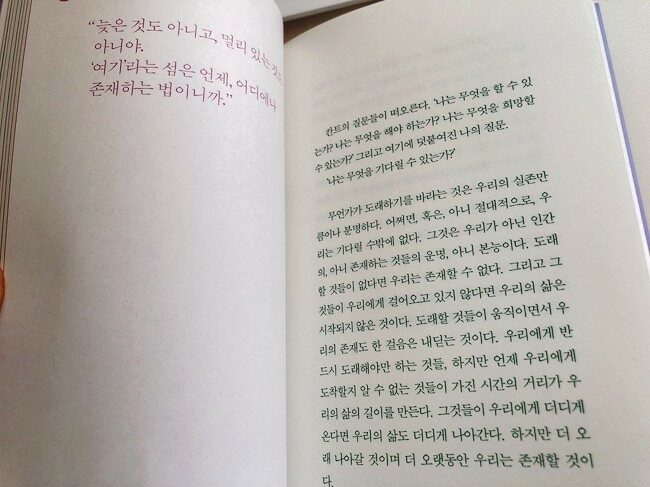 “늦은 것도 아니고, 멀리 있는 것도
아니야.
‘여기’라는 섬은 언제, 어디에나
존재하는 법이니까.”
칸트의 질문들이 떠오른다. ‘나는 무엇을 할 수 있
는가? 나는 무엇을 해야 하는가? 나는 무엇을 희망할
수 있는가? 그리고 여기에 덧붙여진 나의 질문.
‘나는 무엇을 기다릴 수 있는가?’
무언가가 도래하기를 바라는 것은 우리의 실존만
큼이나 분명하다. 어쩌면, 혹은, 아니 절대적으로, 우
리는 기다릴 수밖에 없다. 그것은 우리가 아닌 인간
의, 아니 존재하는 것들의 운명, 아니 본능이다. 도래
할 것들이 없다면 우리는 존재할 수 없다. 그리고 그
것들이 우리에게 걸어오고 있지 않다면 우리의 삶은
시작되지 않은 것이다. 도래할 것들이 움직이면서 우
리의 존재도 한 걸음은 내딛는 것이다. 우리에게 반
드시 도래해야만 하는 것들, 하지만 언제 우리에게
도착할지 알 수 없는 것들이 가진 시간의 거리가 우
리의 삶의 길이를 만든다. 그것들이 우리에게 더디게
온다면 우리의 삶도 더디게 나아간다. 하지만 더 오
래 나아갈 것이며 더 오랫동안 우리는 존재할 것이
다.